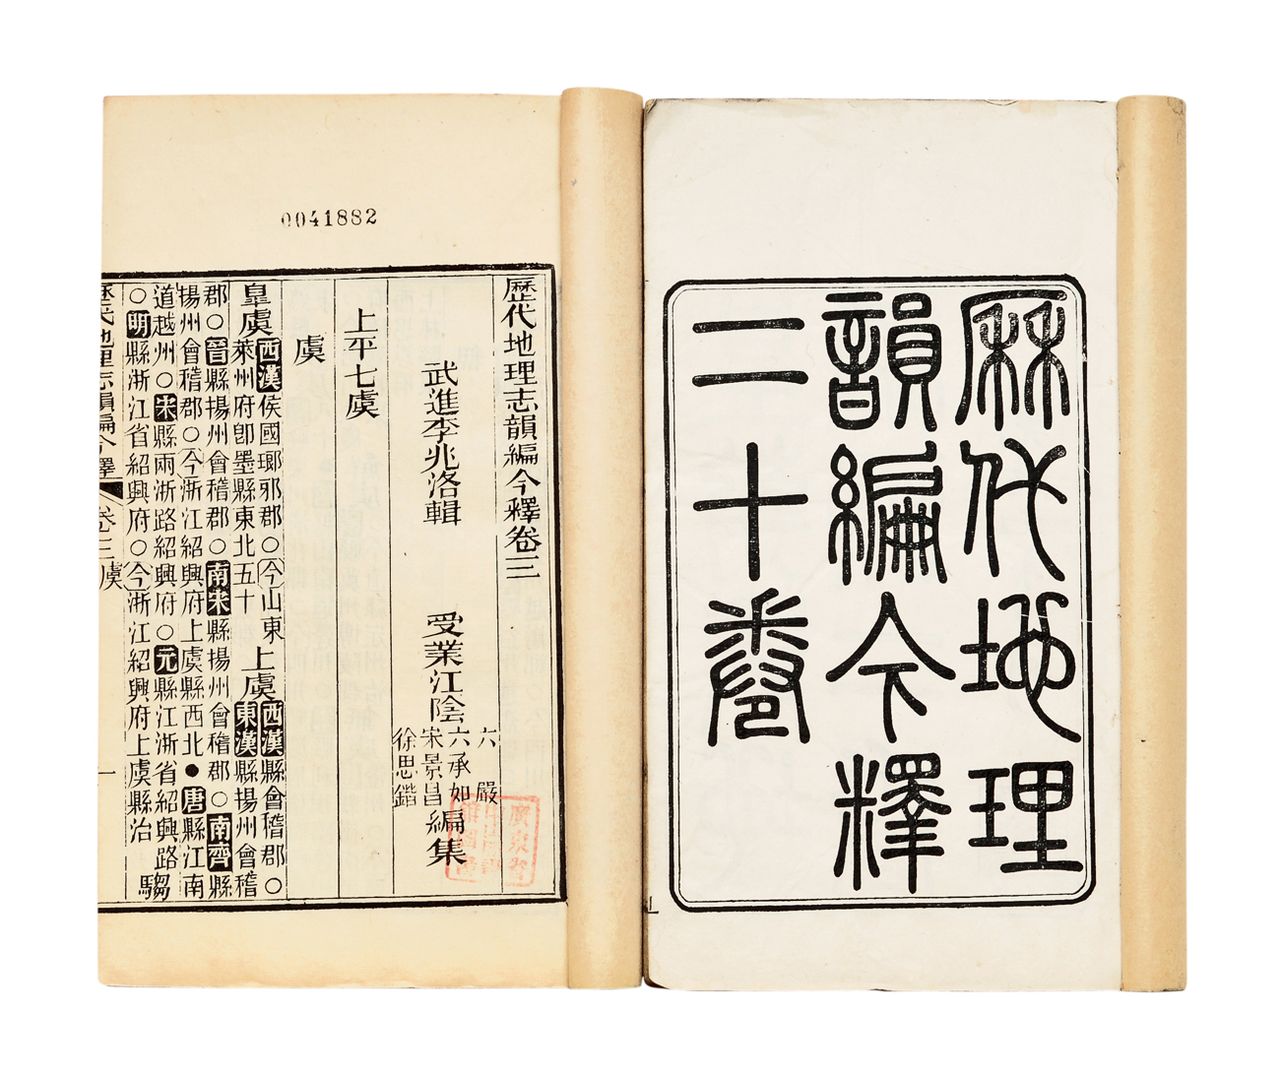 厤代地理
韻編今釋
二十卷
0041882
歷代地理志韻編今釋卷三
武進李兆洛輯 受業江陰
六嚴
六承如
宋景昌
徐思鍇
編集
上平七虞
虞
皐虞
西漢侯國瑯邪郡○今山東
萊州府卽墨縣東北五十
上虞
西漢縣會稽郡○
東漢縣揚州會稽
郡○晉縣揚州會稽郡○南宋縣揚州會稽郡○南齊縣
揚州會稽郡○今浙江紹興府上虞縣西北●唐縣江南
道越州○宋縣兩浙路紹興府○元縣江浙省紹興路
○明縣浙江省紹興府○今浙江紹興府上虞縣治
騶
歷代地理志韻編今釋 卷三虞 一